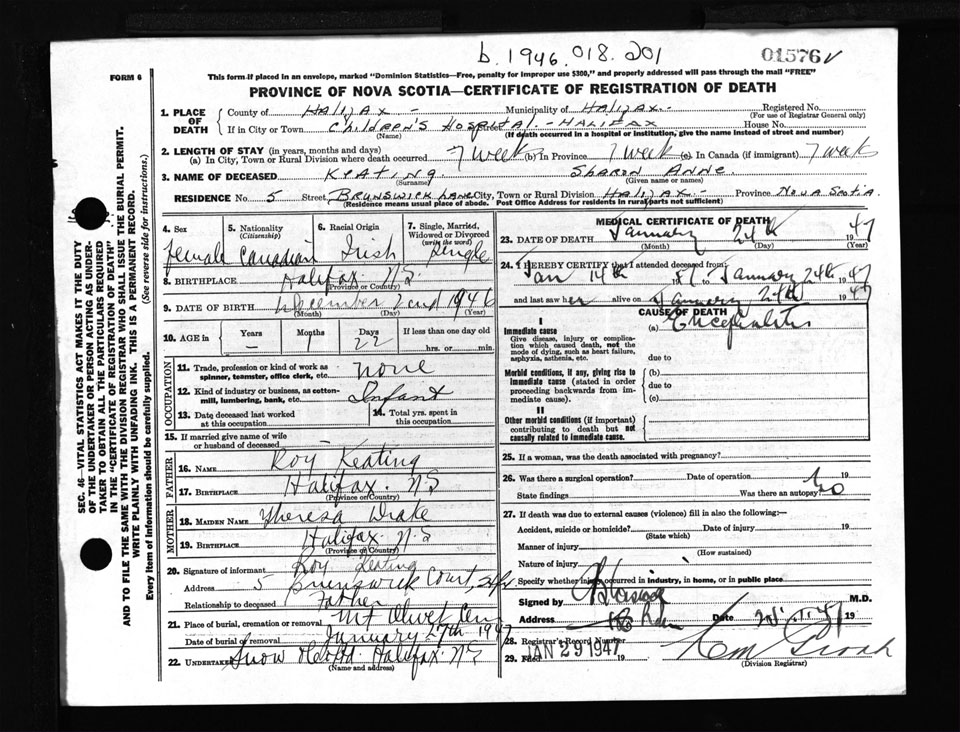 b. 1946. 018. 201
01576
FORM 6
This form if placed in an envelope, marked "Dominion Statistics—Free, penalty for improper use $300," and properly addressed will pass through the mail "FREE"
PROVINCE OF NOVA SCOTIA—CERTIFICATE OF REGISTRATION OF DEATH
SEC. 46—VITAL STATISTICS ACT MAKES IT THE DUTY
OF THE UNDERTAKER OR PERSON ACTING AS UNDER-
TAKER TO OBTAIN ALL THE PARTICULARS REQUIRED
IN THE "CERTIFICATE OF REGISTRATION OF DEATH"
AND TO FILE THE SAME WITH THE DIVISION REGISTRAR WHO SHALL ISSUE THE BURIAL PERMIT.
WRITE PLAINLY WITH UNFADING INK. THIS IS A PERMANENT RECORD.
Every item of Information should be carefully supplied. (See reverse side for instructions.)
1. PLACE OF DEATH County of Halifax - Municipality of Halifax - Registered No.
(For use of Registrar General only)
If in City or Town Children's Hospital - Halifax House No.
(Name) (If death occurred in a hospital or institution, give the name instead of street and number)
2. LENGTH OF STAY (in years, months and days)
(a) In City, Town or Rural Division where death occurred 7 week (b) In Province 7 week (c) In Canada (if immigrant) 7 week
3. NAME OF DECEASED Keating Sharon Anne
(Surname) (Given name or names)
RESIDENCE No. 5 Street Brunswick Lane City, Town or Rural Division Halifax - Province Nova Scotia.
(Residence means usual place of abode. Post Office Address for residents in rural parts not sufficient)
4. Sex 5. Nationality (Citizenship) 6. Racial Origin 7. Single, Married, Widowed or Divorced (write the word)
female Canadian Irish Single
8. BIRTHPLACE Halifax N.S
(Province or Country)
9. DATE OF BIRTH December 2nd 1946
(Month) (Day) (Year)
10. AGE Years Months Days If less than one day old
— 1 22 hrs. or min.
OCCUPATION
11. Trade, profession or kind of work as spinner, teamster, office clerk, etc. none
12. Kind of industry or business, as cotton-mill, lumbering, bank, etc. Infant
13. Date deceased last worked at this occupation 14. Total yrs. spent in this occupation
15. If married give name of wife or husband of deceased
FATHER
16. NAME Roy Keating
17. BIRTHPLACE Halifax. N.S
(Province or Country)
MOTHER
18. MAIDEN NAME Theresa Drake
19. BIRTHPLACE Halifax. N.S
(Province or Country)
20. Signature of informant Roy Keating
Address 5 Brunswick Court,
Relationship to deceased Father
21. Place of burial, cremation or removal Mt Olivet Cem
Date of burial or removal January 27th 1947
22. UNDERTAKER Snow Halifax. NS
(Name and address)
MEDICAL CERTIFICATE OF DEATH
23. DATE OF DEATH January 24th 1947
(Month) (Day) (Year)
24. I HEREBY CERTIFY that I attended deceased from
Jan 14th to January 24th 1947
and last saw her alive on January 24th 1947
CAUSE OF DEATH
I
Immediate cause (a) Encephalitis
Give disease, injury or complication which caused death, not the mode of dying, such as heart failure, asphyxia, asthenia, etc.
due to
Morbid conditions, if any, giving rise to immediate cause (stated in order proceeding backwards from immediate cause).
(b)
due to
(c)
II
Other morbid conditions (if important) contributing to death but not causally related to immediate cause.
25. If a woman, was the death associated with pregnancy?
26. Was there a surgical operation? Date of operation 19
State findings Was there an autopsy? No
27. If death was due to external causes (violence) fill in also the following:—
Accident, suicide or homicide? Date of injury 19
(State which)
Manner of injury
(How sustained)
Nature of injury
Specify whether injury occurred in industry, in home, or in public place
Signed by M.D.
Address Date 19
28. Registrar's Record Number
29. Filed JAN 29 1947 19
(Division Registrar)